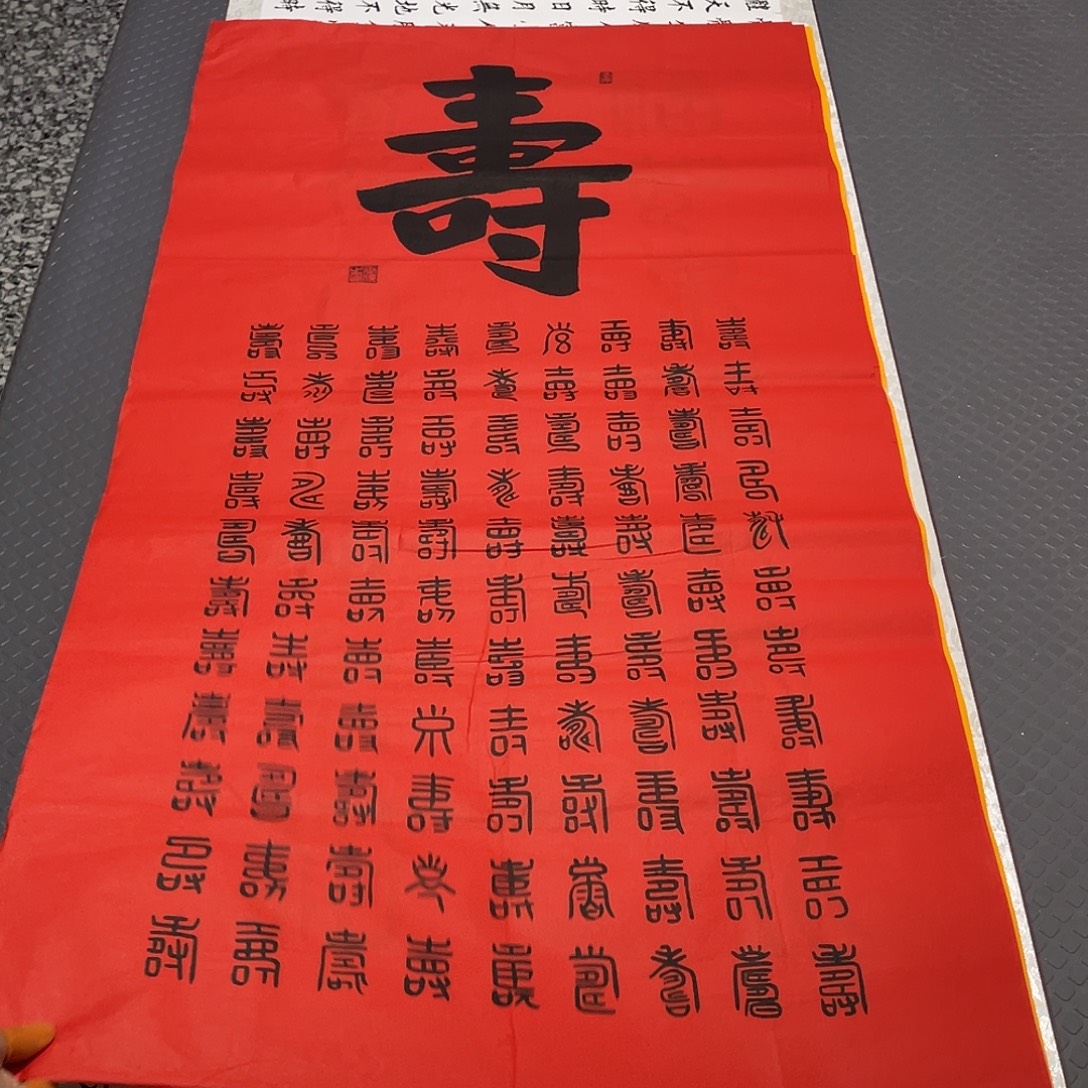 壽
壽壽壽壽壽壽壽壽壽壽壽
壽壽壽壽壽壽壽壽壽壽壽
壽壽壽壽壽壽壽壽壽壽壽
壽壽壽壽壽壽壽壽壽壽壽
壽壽壽壽壽壽壽壽壽壽壽
壽壽壽壽壽壽壽壽壽壽壽
壽壽壽壽壽壽壽壽壽壽壽
壽壽壽壽壽壽壽壽壽壽壽
壽壽壽壽壽壽壽壽壽壽壽